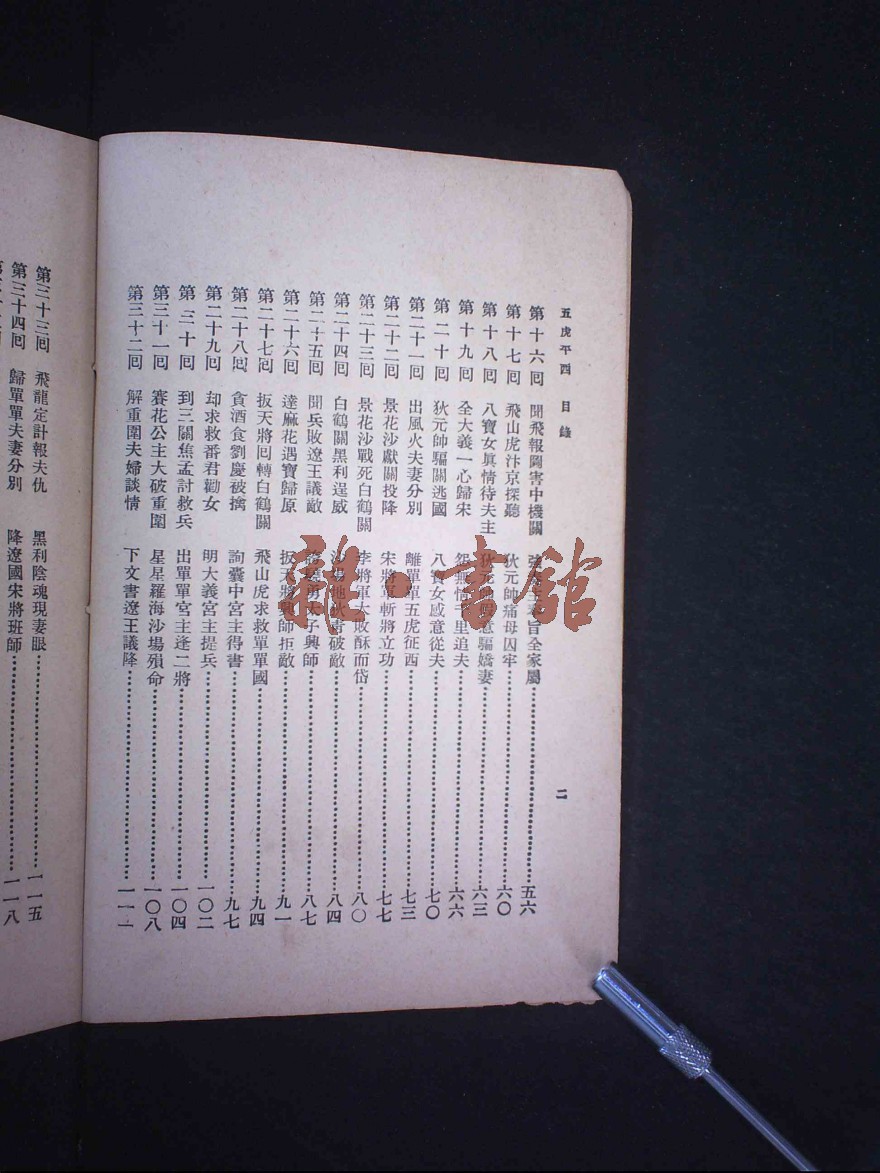 五虎平西 目錄
二
第十六回 聞飛報圖害中機關 旨全家屬 五六
第十七回 飛山虎汴京探聽 狄元帥痛母囚牢 六〇
第十八回 八寶女眞情待夫主 狄元帥 意騙嬌妻 六三
第十九回 全大義一心歸宋 怨無情千里追夫 六六
第二十回 狄元帥騙關逃國 八寶女感意從夫 七〇
第二十一回 出風火夫妻分別 離單單五虎征西 七三
第二十二回 景花沙獻關投降 宋將軍斬將立功 七七
第二十三回 景花沙戰死白鶴關 李將軍大敗酥而岱 八〇
第二十四回 白鶴關黑利逞威 沙場地狄青破敵 八四
第二十五回 聞兵敗遼王議敵 勇太子興師 八七
第二十六回 達麻花遇寶歸原 扳天將興師拒敵 九一
第二十七回 扳天將回轉白鶴關 飛山虎求救單單國 九四
第二十八回 貪酒食劉慶被擒 詢囊中宮主得書 九七
第二十九回 却求救番君勸女 明大義宮主提兵 一〇二
第三十回 到三關焦孟討救兵 出單單宮主逢二將 一〇四
第三十一回 賽花公主大破重圍 星星羅海沙場殞命 一〇八
第三十二回 解重圍夫婦談情 下文書遼王議降 一一二
第三十三回 飛龍定計報夫仇 黑利陰魂現妻眼 一一五
第三十四回 歸單單夫妻分別 降遼國宋將班師 一一八
雜·書館